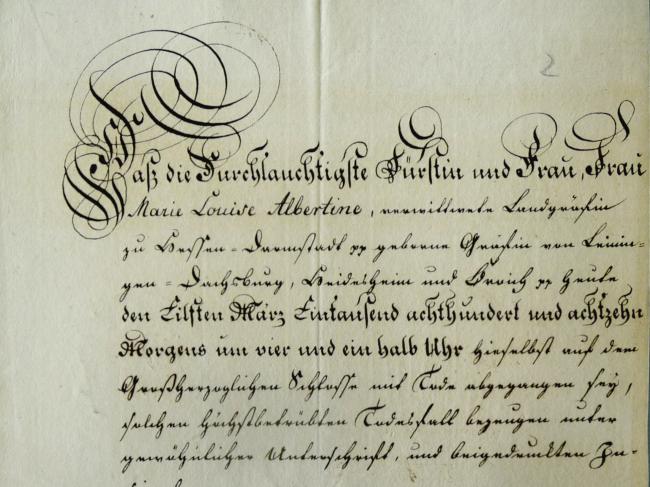 2
Daß die Durchlauchtigste Fürstin und Frau, Frau
Marie Louise Albertine, verwittwete Landgräfin
zu Hessen-Darmstadt pp geborne Gräfin von Leinin-
gen-Dachsburg, Heidesheim und Broich pp heute
den Eilften März Eintausend achthundert und achtzehn
Morgens um vier und ein halb Uhr hieselbst auf dem
Großherzoglichen Schlosse mit Tode abgegangen sey,
solchen höchstbetrübten Todesfall bezeugen unter
gewöhnlicher Unterschrift, und beigedruckten In-